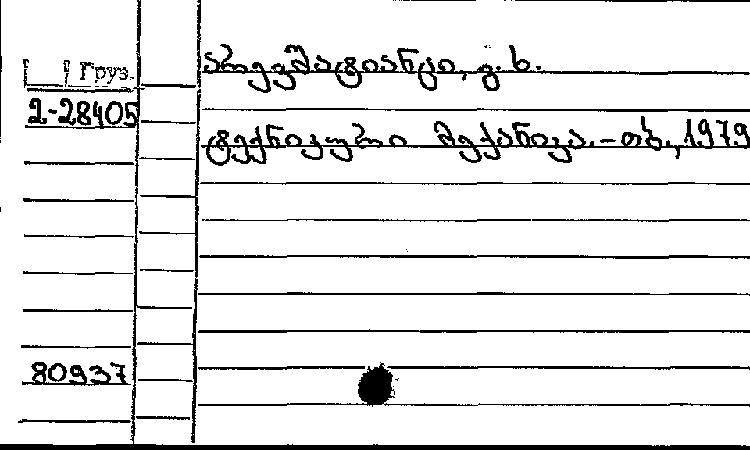 Груз.
არევშატიანცი, გ. ხ.
2-28405
ტექნიკური მექანიკა.-თბ., 1979
80937